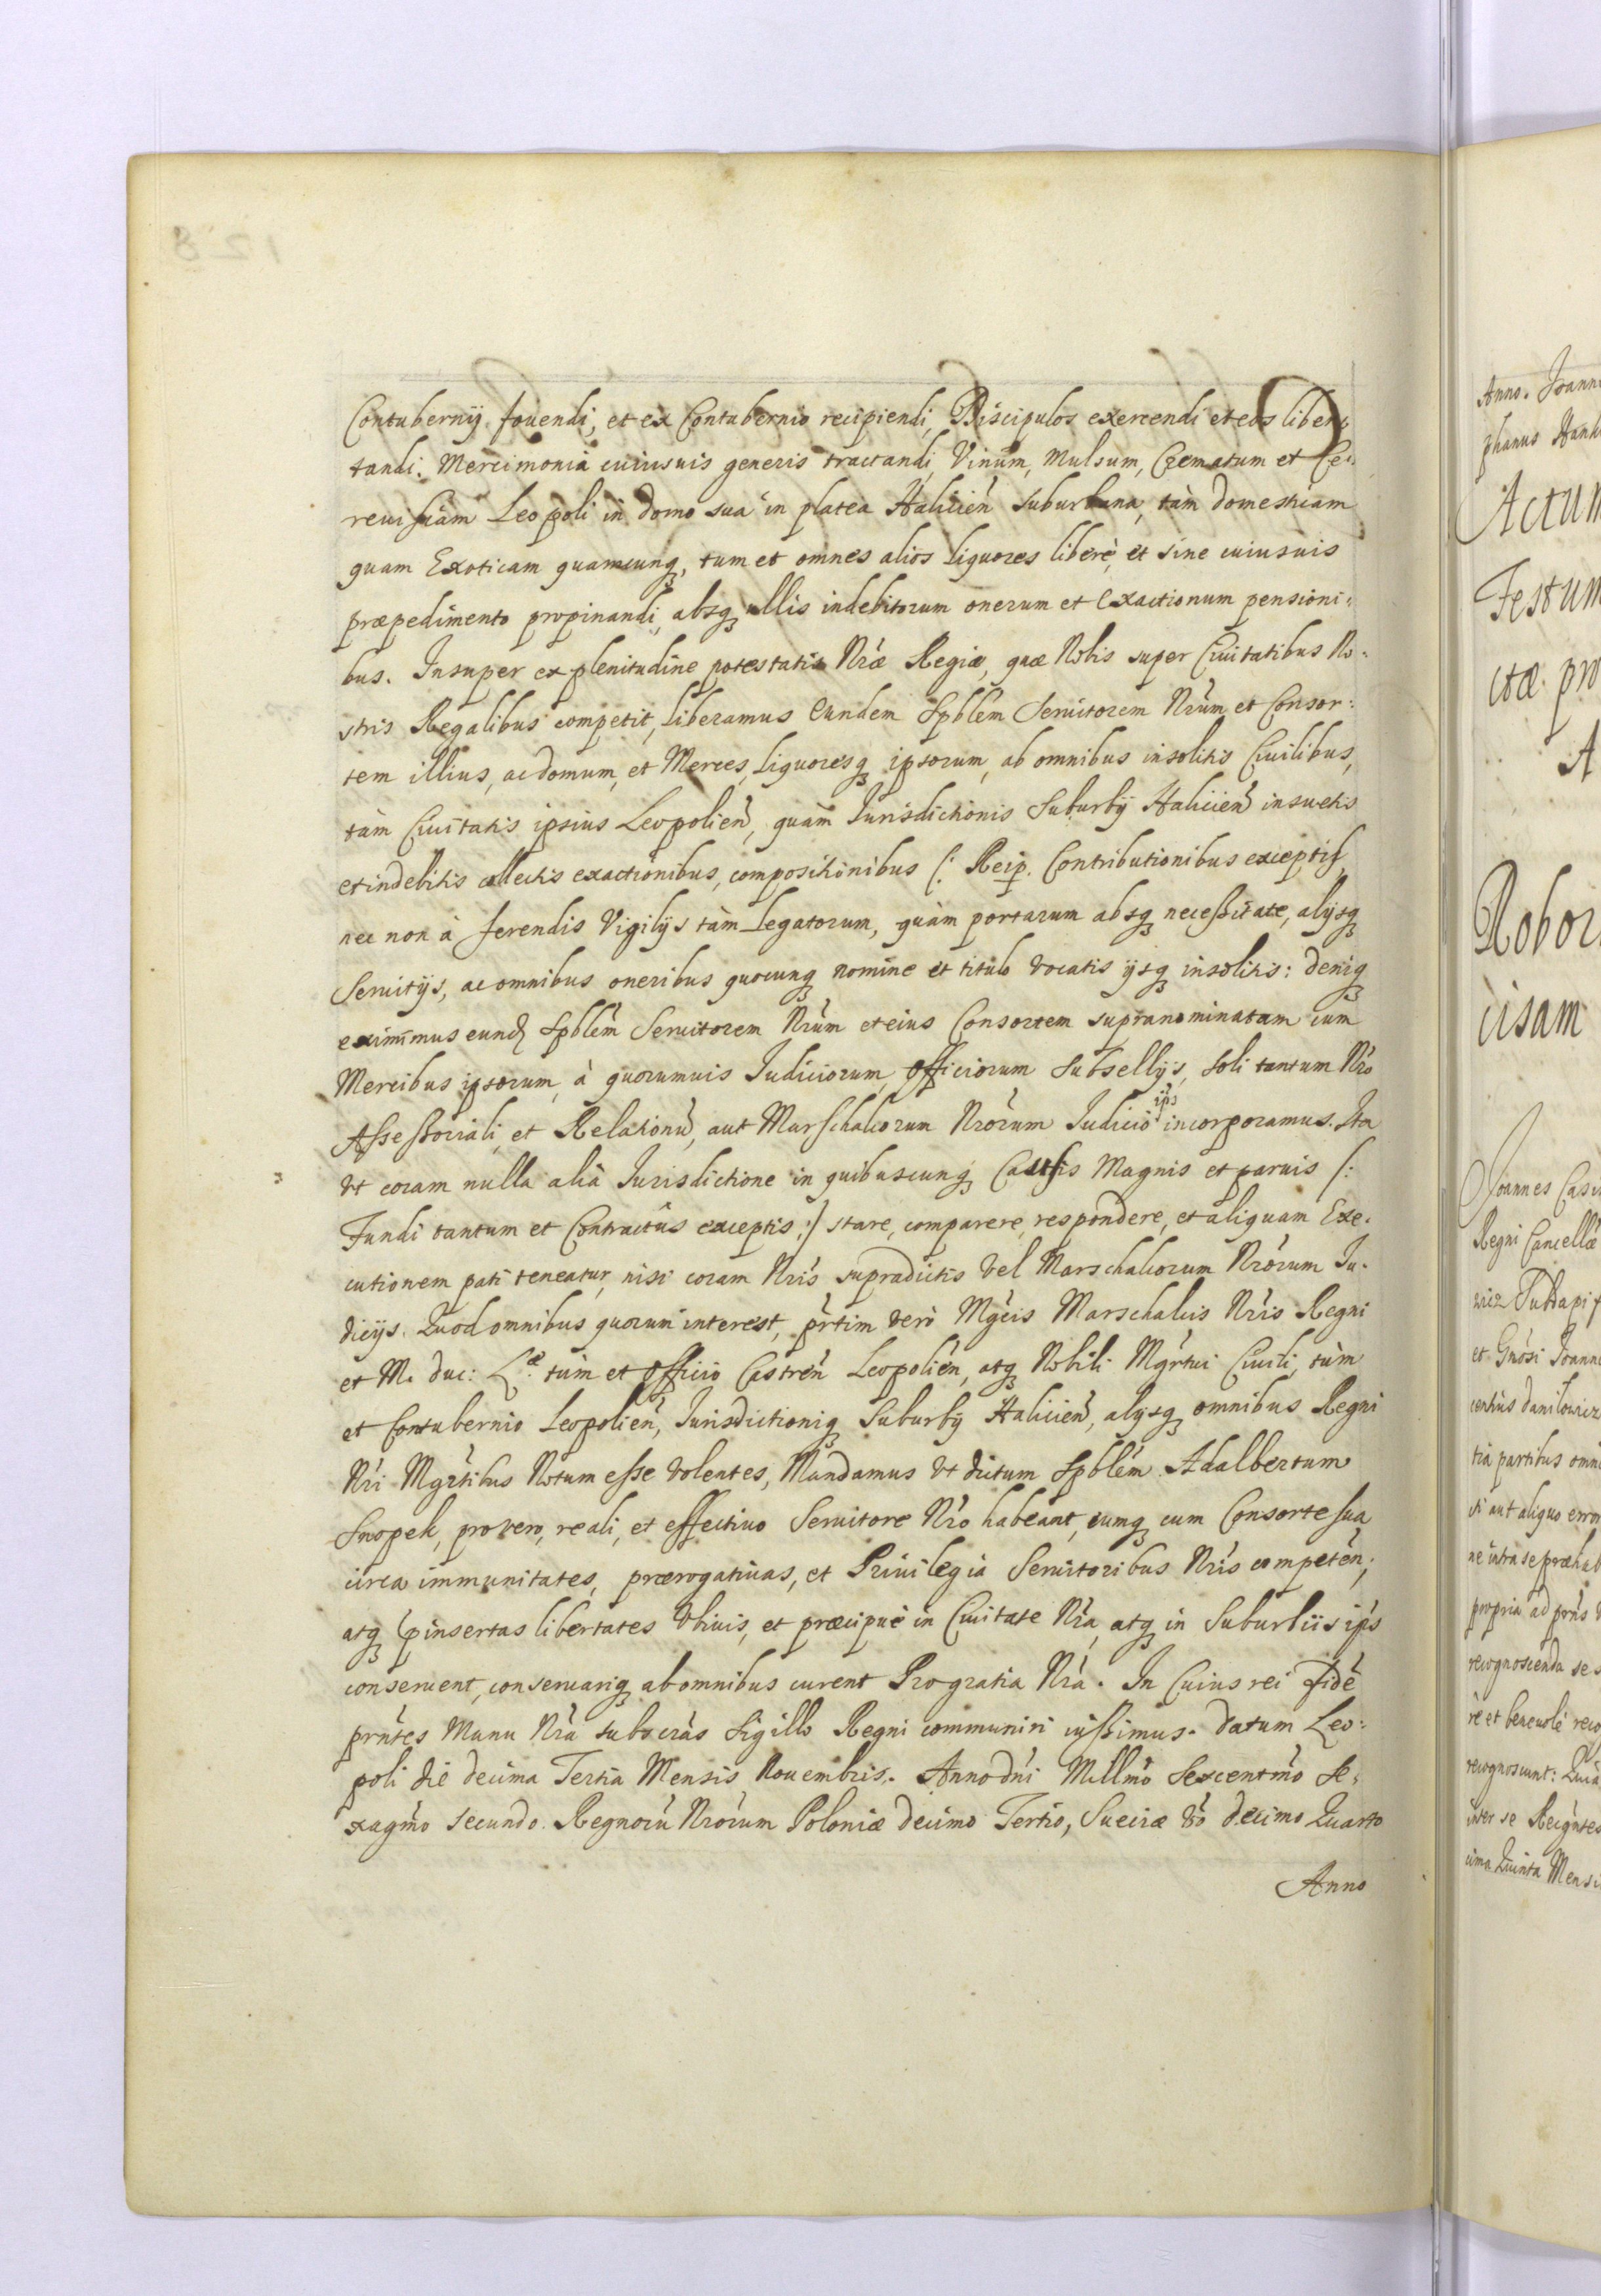 Contubernij fouendi, et ex Contubernio recipiendi, Discipulos exercendi et eos liber:
tandi. Mercimonia cuiusuis generis tractandi, Vinum, Mulsum, Crematum et Ce:
reuisiam Leopoli in domo sua in platea Halicien̄ Suburbana, tàm domesticam
quam Exoticam quamcunq3, tum et omnes alios liquores liberè, et sine cuiusuis
præpedimento propinandi, absq3 ullis indebitorum onerum et Exactionum pensioni:
bus. Insuper ex plenitudine potestatis Nræ Regiæ, quæ Nobis super Ciuitatibus No:
stris Regalibus competit, liberamus Eundem Spblem Seruitorem Nrum et Consor:
tem illius, ac domum, et Merces, liquoresq3 ipsorum, ab omnibus insolitis Ciuilibus,
tàm Ciuitatis ipsius Leopolien̄, quàm Jurisdictionis Suburbij Haliciens̄ insuetis
et indebitis collectis exactionibus, compositionibus (: Reip. Contributionibus exceptis,
nec non à ferendis Vigilijs tàm Legatorum, quàm portarum absq3 necessitate, alijsq3
Seruitijs, ac omnibus oneribus quocunq3 nomine et titulo vocatis ijsq3 insolitis: deniq3
eximimus eund Spblem Seruitorem Nrum et eius Consortem supranominatam cum
Mercibus ipsorum, à quorumuis Judiciorum, Officiorum Subsellijs, soli tantum Nro
Assessoriali, et Relationū, aut Marschalcorum Nrorum Judicio ips incorporamus. Ita
vt coram nulla alia Jurisdictione in quibuscunq3 Causis Magnis et paruis (:
Fundi tantum et Contractûs exceptis :) stare, comparere, respondere, et aliquam Exe:
cutionem pati teneatur, nisi coram Nris supradictis vel Marschalcorum Nrorum Ju:
dicijs. Quod omnibus quorum interest, prtim verò Mgcis Marschalcis Nris Regni
et M. duc: Læ tùm et Officio Castren̄ Leopolien̄, atq3 Nobili Mgrtui Ciuili, tùm
et Contubernio Leopolien̄, Jurisdictioniq3 Suburbij Haliciens̄, alijsq3 omnibus Regni
Nri Mgrtibus Notum esse volentes, Mandamus vt dictum Spblem Adalbertum
Snopek, pro vero, reali, et effectiuo Seruitore Nro habeant, eumq3 cum Consorte sua
circa immunitates, prærogatiuas, et Priuilegia Seruitoribus Nris competen̄,
atq3 pinsertas libertates vbiuis, et præcipuè in Ciuitate Nra, atq3 in Suburbiis ips
conseruent, conseruariq3 ab omnibus curent Pro gratia Nra. In Cuius rei fidē
prntes Manu Nra subscras Sigillo Regni communiri iussimus. Datum Leo:
poli die decima Tertia Mensis Nouembris. Anno dni Millmo Sexcentmo Se:
xagmo secundo. Regnorū Nrorum Poloniæ decimo Tertio, Sueciæ vō decimo Quarto
Anno
Anno. Joann
phanus Hank
Actum
Festum
ctæ. pro
A
Robor
cisam
Joannes Casi
Regni Cancellæ
wicz Subdapif
et Gnosi Joann
centius danilowicz
tia partibus omni
si aut aliquo error
ne intra se præhab
propria ad prns
recognoscenda se s
rè et beneuolè reco
recognoscunt: Quia
inter se Recgntes
cima Quinta Mensi
128